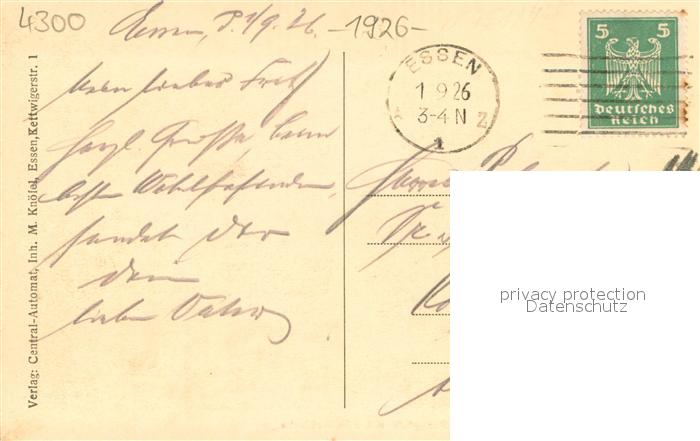 4300
Essen, d. 1/9. 26. -1926-
Mein lieber Fritz
Herzl. Grüsse, beim
besten Wohlbefinden,
sendet dir
dein
lieber Vater
Verlag: Central-Automat, Inh. M. Knöfel, Essen, Kettwigerstr. 1
ESSEN
1 9.26
3-4 N
Z
1
5 5
Deutsches
Reich
Herrn
privacy protection
Datenschutz